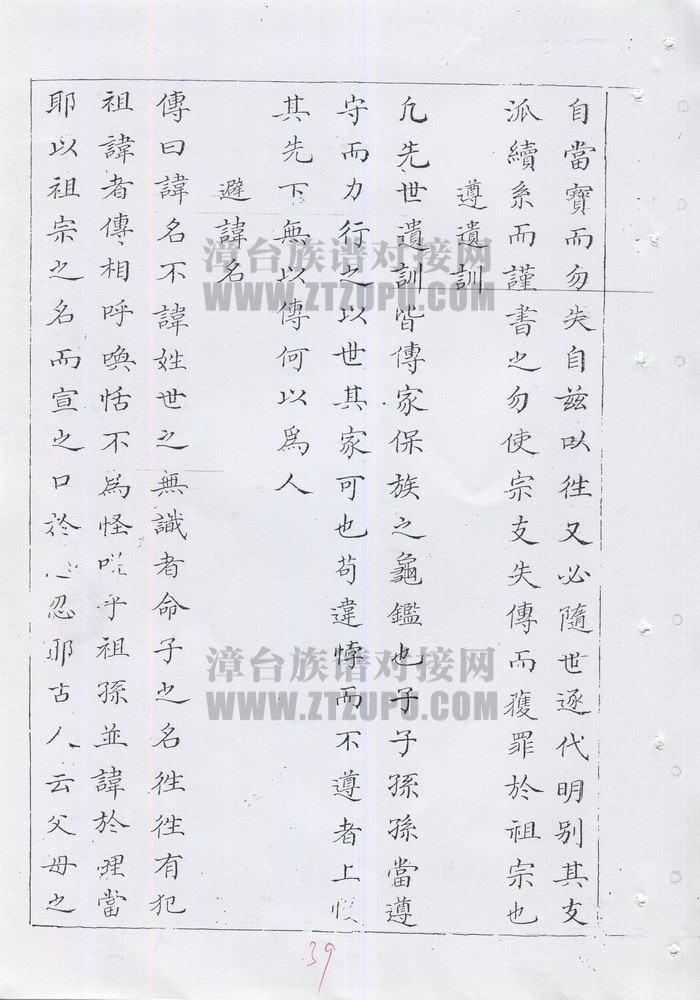 自當寶而勿失自茲以徃又必隨世逐代明别其支
派續系而謹書之勿使宗支失傳而獲罪於祖宗也
遵遺訓
凡先世遺訓皆傳家保族之龜鑑也子子孫孫當遵
守而力行之以世其家可也苟違悖而不遵者上
其先下無以傳何以爲人
避諱名
傳曰諱名不諱姓世之無識者命子之名徃徃有犯
祖諱者傳相呼喚恬不爲怪嗟乎祖孫並諱於理當
耶以祖宗之名而宣之口於心忍耶古人云父母之
39
漳台族谱对接网
WWW.ZTZUPU.COM
漳台族谱对接网
WWW.ZTZUPU.COM